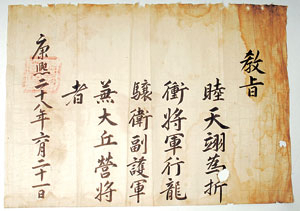 敎旨
睦天翊爲折
衝將軍行龍
驤衛副護軍
兼大丘營將
者
康熙二十八年六月二十一日